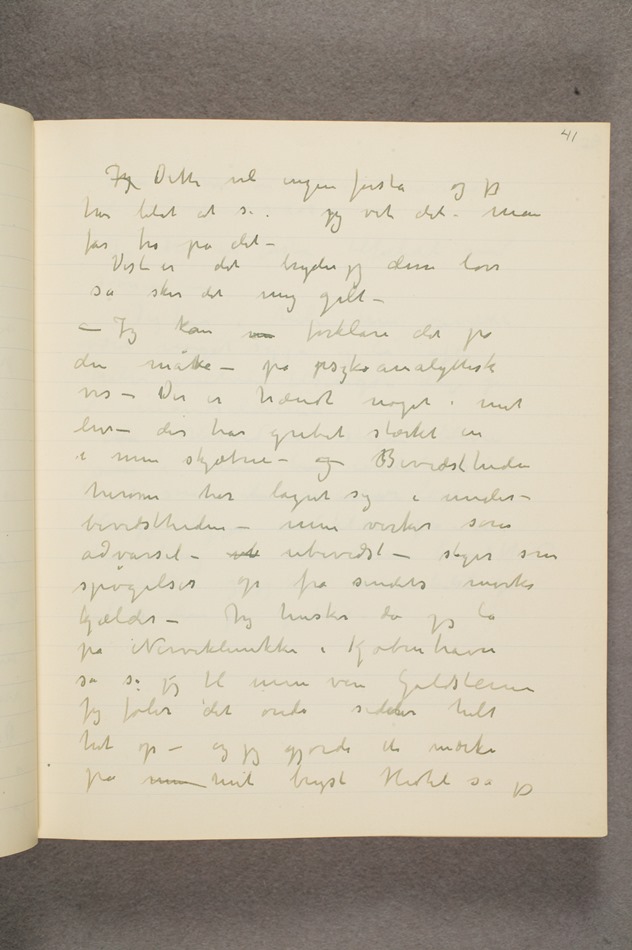 41
Jeg Dette vil ingen forstå og jeg
har ledt at se. jeg vet det. man
får tro på det –
Vist er det bryder jeg denne lov
så sker det mig galt –
– Jeg kan forklare det på
den måtte – på psykoanalyttisk
vis – Der er hændt noget i mit
liv – der har grebet stærkt in
i min skjæbne – og Bevidstheden
herom har lagret sig i under-
bevidstheden – men virker som
advarsel – ubevidst – stiger som
spøgelser op fra sindets mørke
kjælder – Jeg husker da jeg lå
på Nerveklinikken i Kjøbenhavn
så sa jeg til min ven Goldstein
Jeg føler det onde sidder helt
hit op – og jeg gjorde et mærke
på min mit bryst Hertil sa jeg